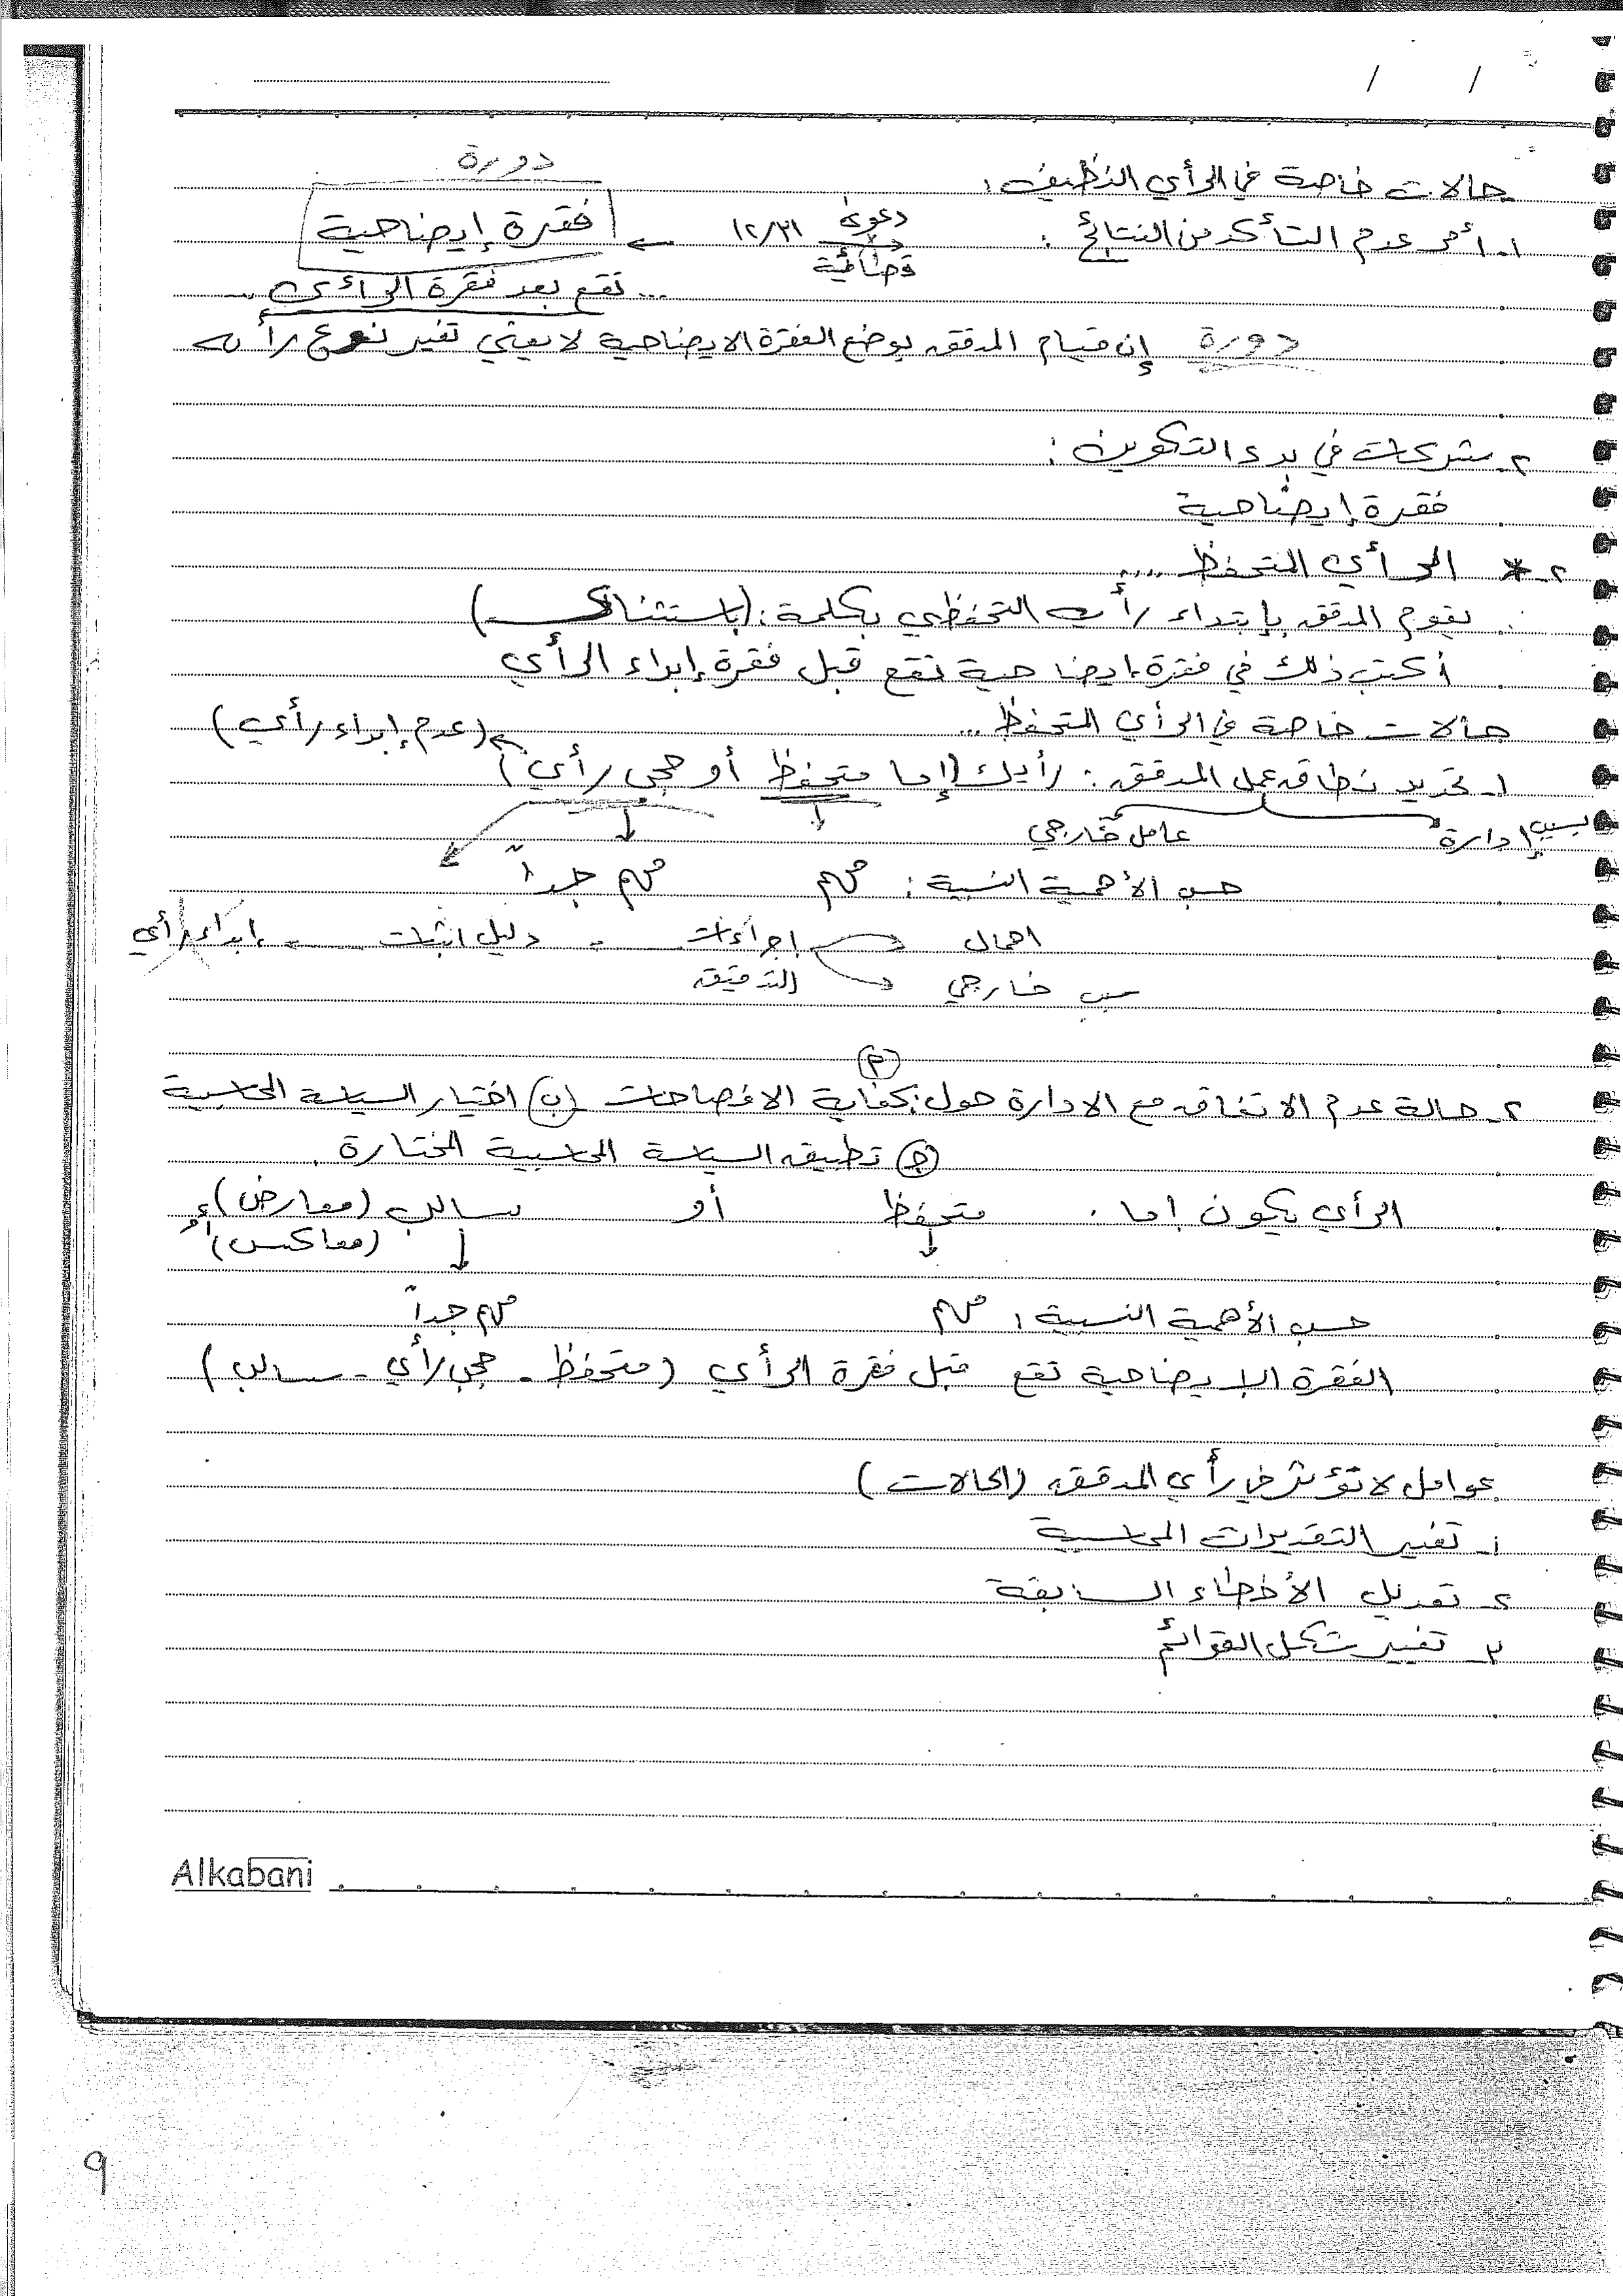 دورة
حالات خاصة في الرأي النظيف:
١- أثر عدم التأكد من النتائج: دعوى قضائية ١٢/٣١ ← فقرة إيضاحية
... تقع بعد فقرة الرأي ..
دورة إن قيام المدقق بوضع الفقرة الايضاحية لا يعني تغير نوع رأيه
٢- شركات في بدء التكوين:
فقرة إيضاحية
٢- * الرأي المتحفظ ....
يقوم المدقق بإبتداء رأيه التحفظي بكلمة: (باستثناء)
أكتب ذلك في فقرة ايضاحية تقع قبل فقرة إبداء الرأي
حالات خاصة في الرأي المتحفظ ...
(عدم إبداء رأي)
١- تحديد نطاق عمل المدقق: رأيك (إما متحفظ أو حجب رأي)
بسبب إدارة عامل خارجي
حسب الأهمية النسبية: مهم مهم جداً
اهمال إجراءات - دليل اثبات - إبداء رأي
سبب خارجي التدقيق
٢- حالة عدم الاتفاق مع الادارة حول: (أ) كفاية الافصاحات (ب) اختيار السياسة المحاسبية
(ج) تطبيق السياسة المحاسبية المختارة.
الرأي يكون إما: متحفظ أو سالب (معارض)
(معاكس)
حسب الأهمية النسبية: مهم مهم جداً
الفقرة الإيضاحية تقع قبل فقرة الرأي (متحفظ - حجب رأي - سالب)
عوامل لا تؤثر في رأي المدقق (الحالات)
١- تغيير التقديرات المحاسبية
٢- تعديل الأخطاء السابقة
٣- تغيير شكل القوائم
Alkabani
٩